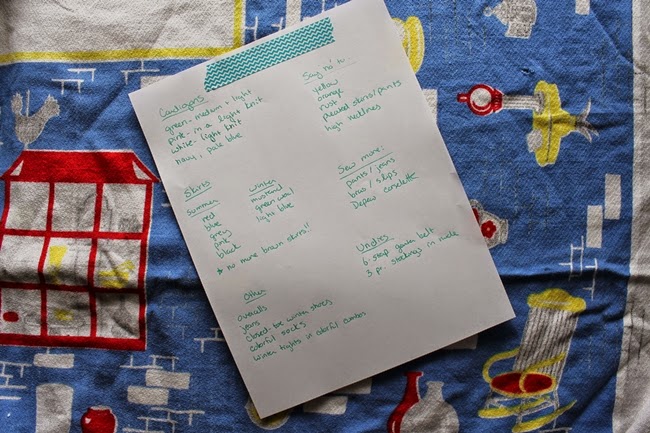 Cardigans
green - medium + light
pink - in a light knit
white - light knit
navy, pale blue
Say 'no' to...
yellow
orange
rust
pleated skirts/pants
high necklines
Skirts
summer
red
blue
grey
pink
black
* no more brown skirts!!
winter
mustard
green wool
light blue
Sew more:
pants / jeans
bras / slips
Depew corselette
Undies
6-strap garter belt
3 pr. stockings in nude
Other
overalls
jeans
closed-toe winter shoes
colorful socks
winter tights in colorful combos